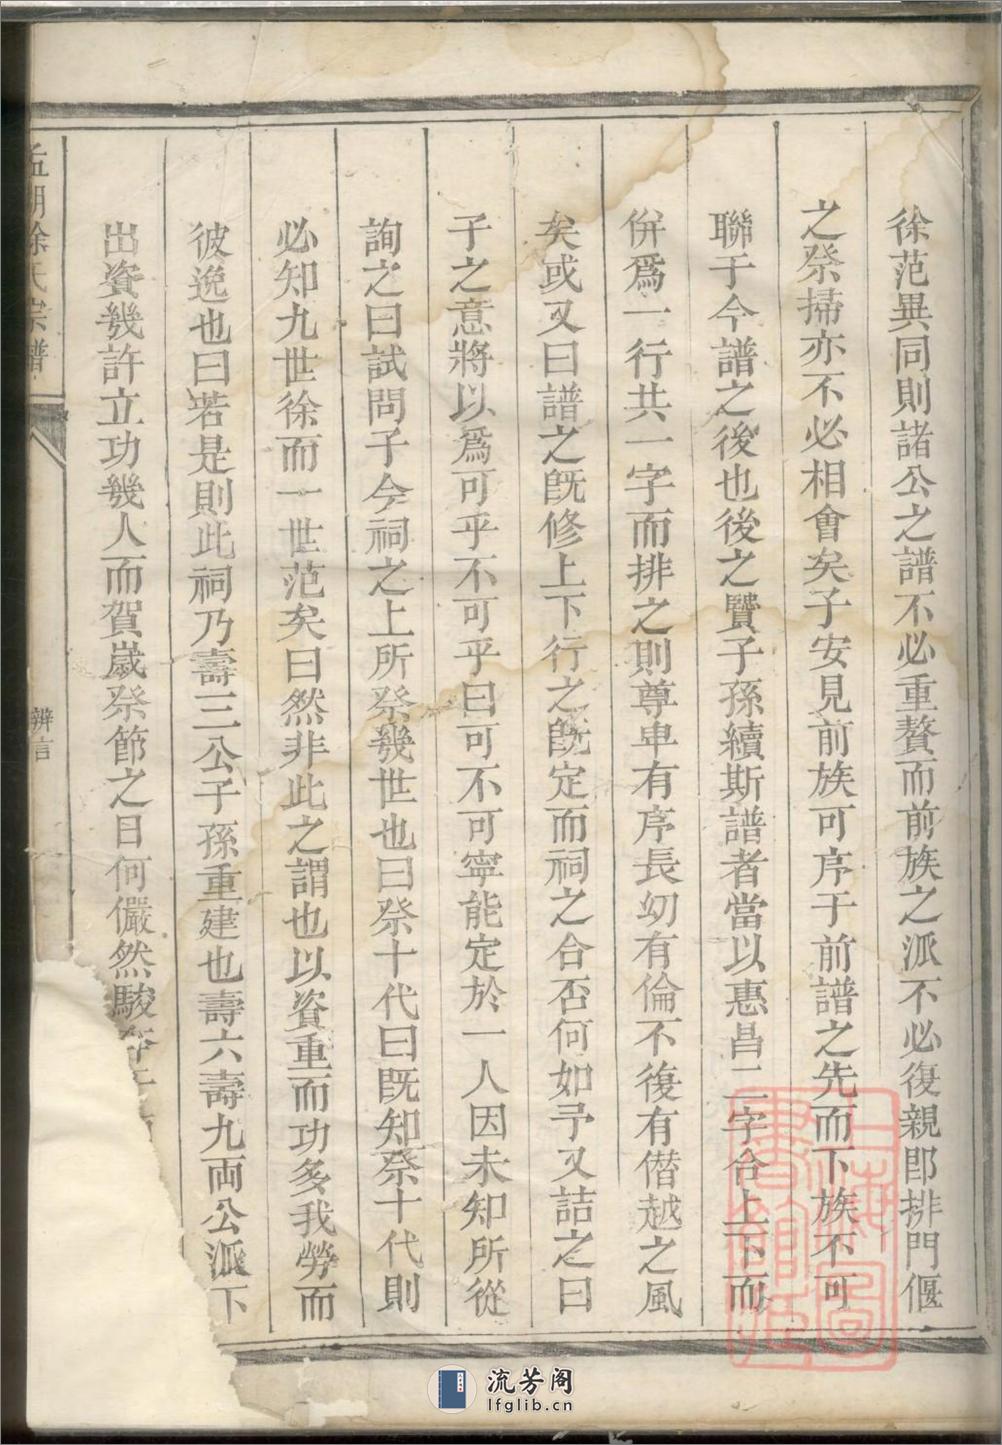 徐范異同則諸公之譜不必重贅而前族之派不必復親即排門偃
之祭掃亦不必相會矣子安見前族可序于前譜之先而下族不可
聯于今譜之後也後之賢子孫續斯譜者當以惠昌二字合上下而
併爲一行共一字而排之則尊卑有序長幼有倫不復有僭越之風
矣或又曰譜之既修上下行之既定而祠之合否何如予又詰之曰
子之意將以爲可乎不可乎曰可不可寧能定於一人因未知所從
詢之曰試問子今祠之上所祭幾世也曰祭十代曰既知祭十代則
必知九世徐而一世范矣曰然非此之謂也以資重而功多我勞而
彼逸也曰若是則此祠乃壽三公子孫重建也壽六壽九両公派下
出資幾許立功幾人而賀歲祭節之日何儼然駿
徐氏宗譜
辨言
上海圖書館藏
流芳阁
lfglib.cn